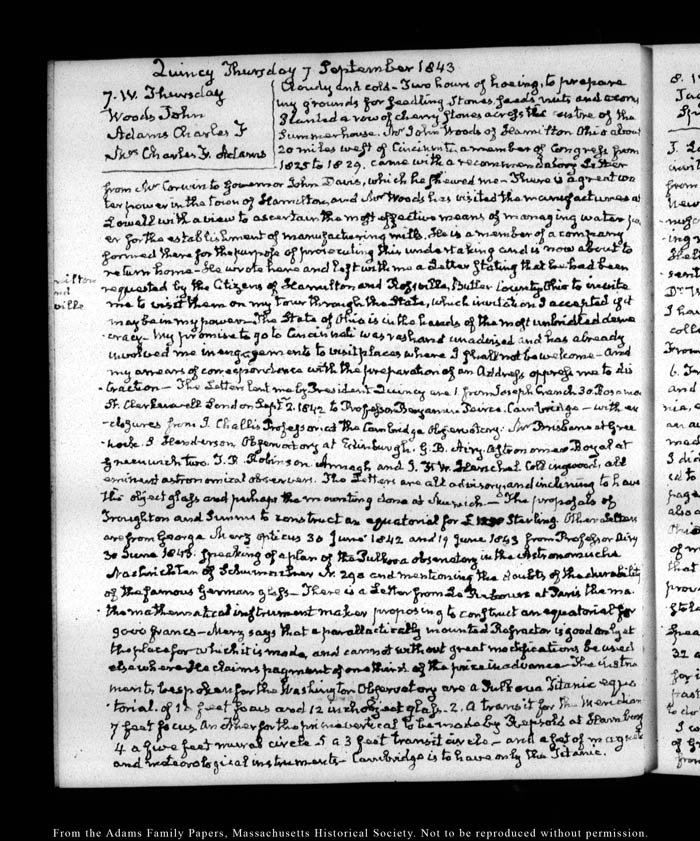 Quincy Thursday 7 September 1843
7. IV. Thursday
Woods John
Adams Charles F
Mrs Charles F. Adams
Cloudy and cold. Two hours of hoeing, to prepare
my grounds for seedling stones, seeds, nuts and acorns
Planted a row of cherry stones across the centre of the
Summerhouse. Mr John Woods of Hamilton Ohio about
20 miles west of Cincinnati, a member of Congress from
1825 to 1829. came with a recommendatory Letter
from Mr Corwin to Governor John Davis, which he shewed me. There is a great wa
ter power in the town of Hamilton, and Mr Woods has visited the manufactures at
Lowell with a view to ascertain the most effective means of managing water pow
er for the establishment of manufacturing mills. He is a member of a company
formed there for the purpose of prosecuting this undertaking and is now about to
return home. He wrote here and left with me a Letter stating that he had been
requested by the Citizens of Hamilton and Rossville, Butler County Ohio to invite
me to visit them on my tour through the State, which invitation I accepted if it
may be in my power. The State of Ohio is in the hands of the most unbridled demo
cracy. My promise to go to Cincinnati was rash and unadvised and has already
involved me in engagements to visit places where I shall not be welcome. And
my arrears of correspondence with the preparation of an Address oppress me to dis
traction. The Letters lent me by President Quincy are 1 from Joseph Cranch 30
St. Clerkenwell London Septr 2. 1842 to Professor Benjamin Peirce. Cambridge. with en
closures from J. Challis Professor at the Cambridge Observatory. Mr Brisbane at
Henderson Observatory at Edinburgh. G. B. Airy, Astronomer Royal at
Greenwich two. T. R. Robinson Armagh and J. F. W. Herschel Collingwood, all
eminent astronomical observers. The Letters are all advisory, and inclining to have
the object glass and perhaps the mounting done at Munich. The proposals of
Troughton and Simms to construct an equatorial for £ Sterling. Other Letters
are from George Merz opticus 30 June 1842 and 19 June 1843 from Professor Airy
30 June 1843. speaking of a plan of the Pulkova observatory in the Astronomische
Nachrichten of Schumacher N. 290 and mentioning the doubts of the durability
of the famous German glass. There is a Letter from Lerebours at Paris the ma
thematical instrument maker proposing to construct an equatorial for
9000 francs. Merz says that a parallactically mounted Refractor is good only at
the place for which it is made, and cannot without great modifications be used
elsewhere. He claims payment of one third of the price in advance. The instru
ments bespoken for the Washington Observatory are a Pulkova Titanic equa
torial of 15 feet focus and 12 inch object glass. 2. A transit for the Meridian
7 feet focus. Another for the prime vertical to be made by Repsold at Hamburg
4 a five feet mural circle. 5 a 3 feet transit circle. and a set of magnetic
and meteorological instruments. Cambridge is to have only the Titanic.
milton
and
ville
From the Adams Family Papers, Massachusetts Historical Society. Not to be reproduced without permission.